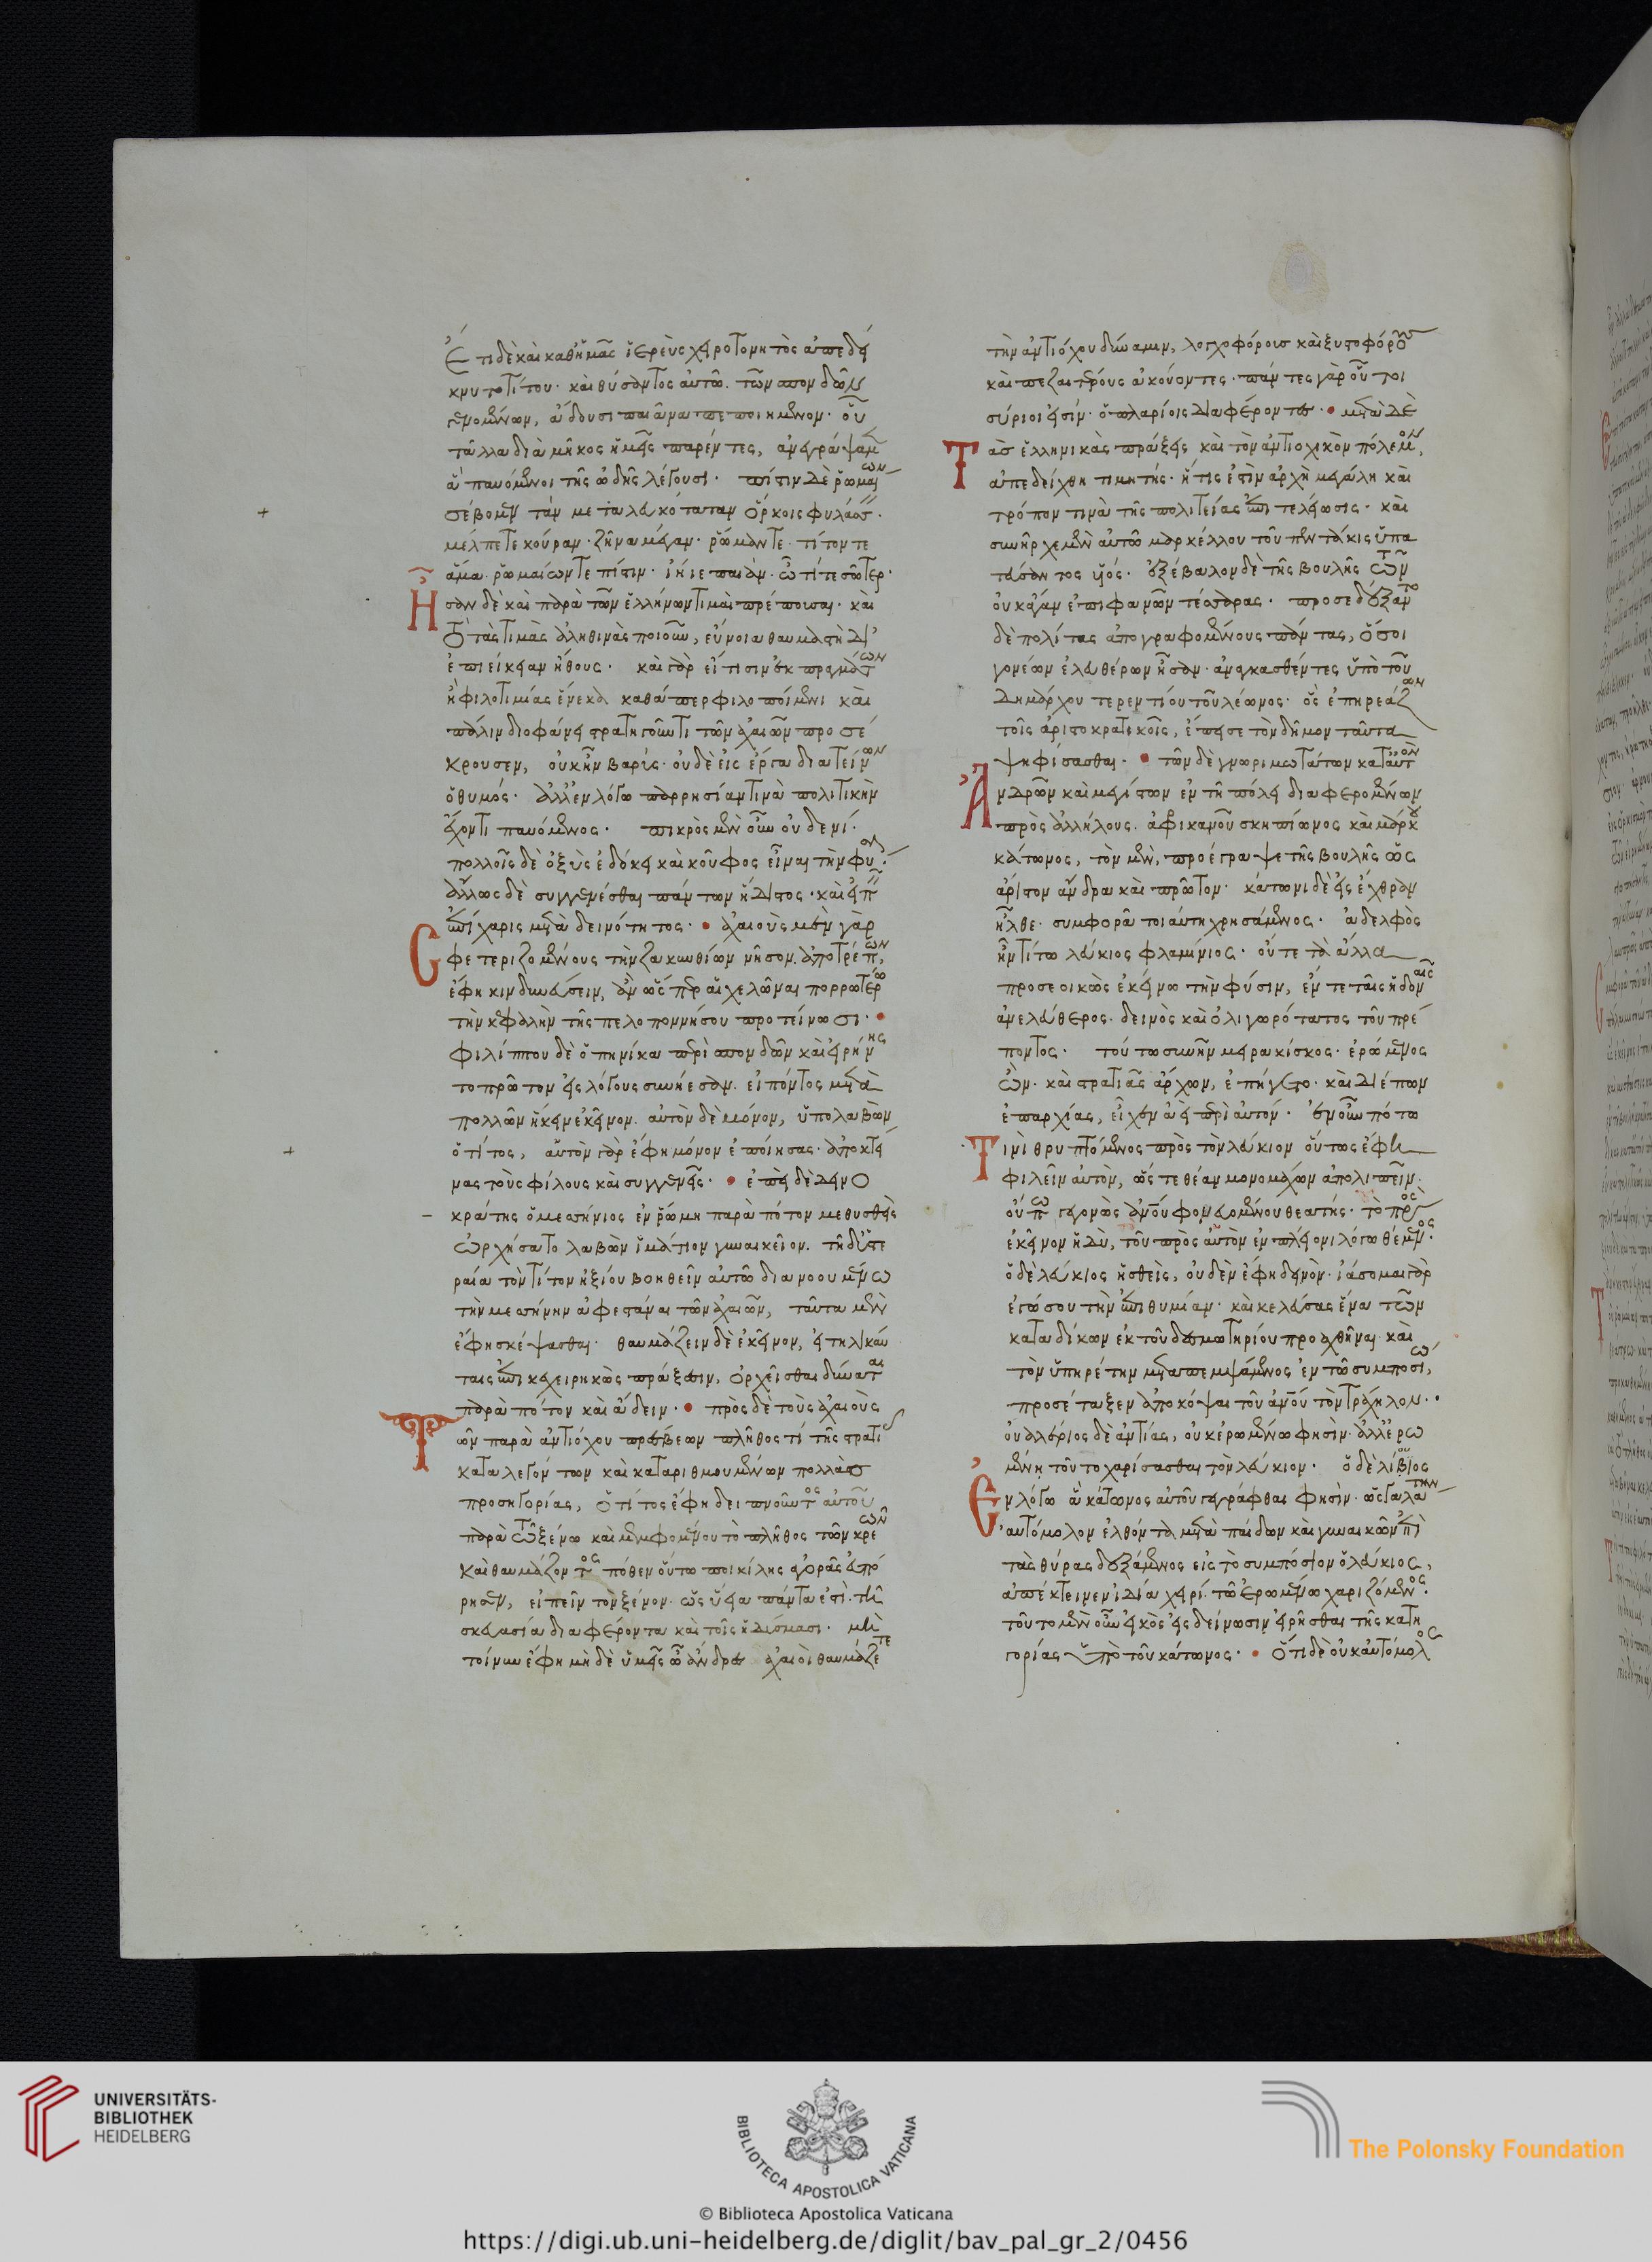 Ἔτι δὲ καὶ καθ' ἡμᾶς ἱερεὺς χειροτονητὸς ἀπεδεί
κνυτο τίτου· καὶ θύσαντος αὐτῶ. τῶν σπονδῶν
γενομένων, ἄδουσι παιᾶνα πεποιημένον· οὗ
τἄλλα διὰ μῆκος ἡμεῖς παρέντες, ἀνεγράψαμεν
ἃ παυόμενοι τῆς ὠδῆς λέγουσι· πίστιν δὲ ῥωμαίων
σέβομεν τὰν μεγαλευκτοτάταν ὅρκοις φυλάσσειν.
μέλπετε κοῦραι· ζῆνα μέγαν· ῥώμαν τε· τίτον τε
ἅμα· ῥωμαίων τε πίστιν· ἰήιε παιάν· ὦ τίτε σῶτερ·
Ἦσαν δὲ καὶ παρὰ τῶν ἑλλήνων τιμαὶ πρέπουσαι· καὶ
ὃ τὰς τιμὰς ἀληθινὰς ποιοῦν, εὔνοια θαυμαστὴ δι'
ἐπιείκειαν ἤθους· καὶ γὰρ εἴ τισιν ἐκ πραγμάτων
ἢ φιλοτιμίας ἕνεκα καθάπερ φιλοποίμενι καὶ
πάλιν διοφάνει στρατηγοῦντι τῶν ἀχαιῶν προσέ
κρουσεν, οὐκ ἦν βαρύς· οὐδὲ εἰς ἔργα διατείνων
ὁ θυμός· ἀλλ' ἐν λόγω παρρησίαν τινὰ πολιτικὴν
ἔχοντι παυόμενος· πικρὸς μὲν οὖν οὐδενί·
πολλοῖς δὲ ὀξὺς ἐδόκει καὶ κοῦφος εἶναι τὴν φύσιν·
ἄλλως δὲ συγγενέσθαι πάντων ἥδιστος· καὶ εἰπεῖν
ἐπίχαρις μετὰ δεινότητος· ἀχαιοὺς μὲν γὰρ
Σφετεριζομένους τὴν ζακυνθίων νῆσον. ἀποτρέπων,
ἔφη κινδυνεύσειν, ἂν ὥσπερ αἱ χελῶναι πορρωτέρω
τὴν κεφαλὴν τῆς πελοποννήσου προτείνωσι·
φιλίππου δὲ ὁπηνίκα περὶ σπονδῶν καὶ εἰρήνης
τοπρῶτον εἰς λόγους συνήεσαν. εἰπόντος μετὰ
πολλῶν ἥκειν ἐκεῖνον. αὐτὸν δὲ μόνον, ὑπολαβὼν
ὁ τίτος, αὐτὸν γὰρ ἔφη μόνον ἐποίησας· ἀποκτεί
νας τοὺς φίλους καὶ συγγενεῖς· ἐπεὶ δὲ δεινο
κράτης ὁ μεσσήνιος ἐν ῥώμη παρὰ πότον μεθυσθεὶς
ὠρχήσατο λαβὼν ἱμάτιον γυναικεῖον. τῆ δ' ὑστε
ραία τὸν τίτον ἠξίου βοηθεῖν αὐτῶ διανοουμένω
τὴν μεσσήνην ἀφεστάναι τῶν ἀχαιῶν, ταῦτα μὲν
ἔφη σκέψασθαι· θαυμάζειν δὲ ἐκεῖνον, εἰ τηλικαύ
ταις ἐπικεχειρηκὼς πράξεσιν, ὀρχεῖσθαι δύναται
παρὰ πότον καὶ ἄδειν· πρὸς δὲ τοὺς ἀχαιοὺς
Τῶν παρὰ ἀντιόχου πρέσβεων πλῆθός τι τῆς στρατιᾶς
καταλεγόντων καὶ καταριθμουμένων πολλὰς
προσηγορίας, ὁ τίτος ἔφη δειπνοῦντος αὐτοῦ
παρὰ τῶ ξένω καὶ μεμφομένου τὸ πλῆθος τῶν κρεῶν
καὶ θαυμάζοντος πόθεν οὕτω ποικίλης ἀγορᾶς εὐπό
ρησεν, εἰπεῖν τὸν ξένον· ὡς ὕεια πάντα ἐστὶ· τῆ
σκευασία διαφέροντα καὶ τοῖς ἡδύσμασι· μὴ
τοίνυν ἔφη μηδὲ ὑμεῖς ὦ ἄνδρες ἀχαιοὶ θαυμάζετε
τὴν ἀντιόχου δύναμιν, λογχοφόρους καὶ ξυστοφόρους
καὶ πεζεταίρους ἀκούοντες· πάντες γὰρ οὗτοι
σύριοι εἰσίν· ὁπλαρίοις διαφέροντες· μετὰ δὲ
Τὰς ἑλληνικὰς πράξεις καὶ τὸν ἀντιοχικὸν πόλεμον,
ἀπεδείχθη τιμητής· ἥτις ἐστὶν ἀρχὴ μεγάλη καὶ
τρόπον τινὰ τῆς πολιτείας ἐπιτελείωσις· καὶ
συνῆρχε μὲν αὐτῶ μαρκέλλου τοῦ πεντάκις ὑπα
τεύσαντος υἱός· ἐξέβαλον δὲ τῆς βουλῆς τῶν
οὐκ ἄγαν ἐπιφανῶν τέσσαρας· προσεδέξαντο
δὲ πολίτας ἀπογραφομένους πάντας, ὅσοι
γονέων ἐλευθέρων ἦσαν· ἀναγκασθέντες ὑπὸ τοῦ
δημάρχου τερεντίου τοῦ λέωνος· ὃς ἐπηρεάζων
τοῖς ἀριστοκρατικοῖς, ἔπεισε τὸν δῆμον ταῦτα
ψηφίσασθαι· τῶν δὲ γνωριμωτάτων κατ' αὐτὸν
Ἀνδρῶν καὶ μεγίστων ἐν τῆ πόλει διαφερομένων
πρὸς ἀλλήλους. ἀφρικανοῦ σκηπίωνος καὶ μάρκου
κάτωνος, τὸν μὲν, προέγραψε τῆς βουλῆς ὡς
ἄριστον ἄνδρα καὶ πρῶτον· κάτωνι δὲ εἰς ἔχθραν
ἦλθε· συμφορᾶ τοιαύτη χρησάμενος· ἀδελφὸς
ἦν τίτω λεύκιος φλαμίνιος· οὔτε τὰ ἄλλα
προσεοικὼς ἐκείνω τὴν φύσιν, ἔν τε ταῖς ἡδοναῖς
ἀνελεύθερος· δεινῶς καὶ ὀλιγωρότατος τοῦ πρέ
ποντος· τούτω συνῆν μειρακίσκος· ἐρώμενος
ὢν· καὶ στρατιᾶς ἄρχων, ἐπήγετο· καὶ διέπων
ἐπαρχίας, εἶχεν ἀεὶ περὶ αὐτόν· ἐν οὖν πότω
Τινὶ θρυπτόμενος πρὸς τὸν λεύκιον οὕτως ἔφη
φιλεῖν αὐτὸν, ὥστε θέαν μονομάχων ἀπολιπεῖν·
οὔπω γεγονὼς ἀνθρώπου φονευομένου θεατής· τὸ πρὸς
ἐκεῖνον ἡδὺ, τοῦ πρὸς αὐτὸν ἐν πλείονι λόγω θέμενος·
ὁ δὲ λεύκιος ἡσθεὶς, οὐδὲν ἔφη δεινόν· ἰάσομαι γὰρ
ἐγώ σου τὴν ἐπιθυμίαν· καὶ κελεύσας ἕνα τῶν
καταδίκων ἐκ τοῦ δεσμωτηρίου προαχθῆναι· καὶ
τὸν ὑπηρέτην μεταπεμψάμενος ἐν τῶ συμποσίω,
προσέταξεν ἀποκόψαι τοῦ ἀνθρώπου τὸν τράχηλον·
οὐαλλέριος δὲ ἀντίας, οὐκ ἐρωμένω φησὶν· ἀλλ' ἐρω
μένη τοῦτο χαρίσασθαι τὸν λεύκιον· ὁ δὲ λίβιος
Ἐν λόγω ἃ κάτωνος αὐτοῦ γεγράφθαι φησὶν· ὡς γαλάτην
αὐτόμολον ἐλθόντα μετὰ παίδων καὶ γυναικῶν ἐπὶ
τὰς θύρας δεξάμενος εἰς τὸ συμπόσιον ὁ λεύκιος,
ἀπέκτεινεν ἰδία χειρί· τῶ ἐρωμένω χαριζόμενος·
τοῦτο μὲν οὖν εἰκὸς εἰς δείνωσιν εἰρῆσθαι τῆς κατη
γορίας ὑπὸ τοῦ κάτωνος· ὅτι δὲ οὐκ αὐτόμολος
UNIVERSITÄTS-
BIBLIOTHEK
HEIDELBERG
BIBLIOTECA APOSTOLICA VATICANA
The Polonsky Foundation
© Biblioteca Apostolica Vaticana
https://digi.ub.uni-heidelberg.de/diglit/bav_pal_gr_2/0456